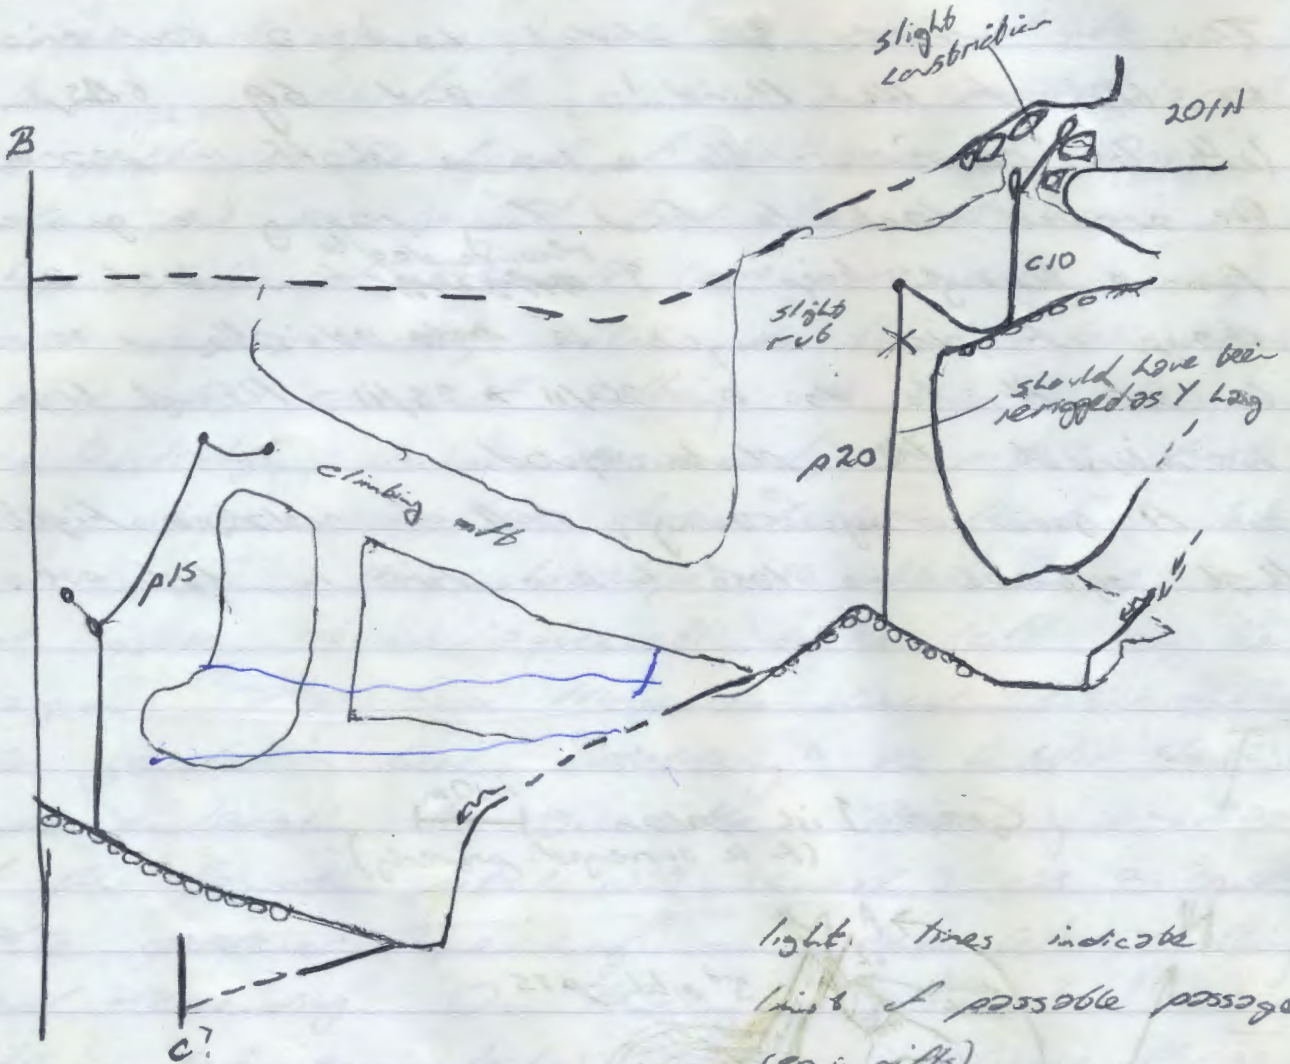 slight
constriction
B
201N
C10
slight
rub
should have been
rerigged as Y hang
p20
climbing
p15
light lines indicate
limit of passable passage
C?